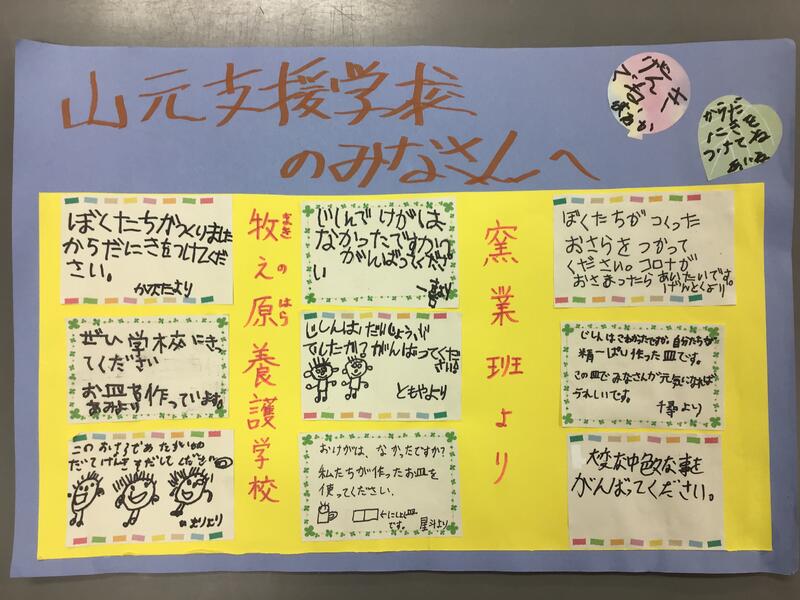 山元支援学校
のみなさんへ
げんき
でね
からだ
にきを
つけてね
あいみ
ぼくたちがつくりました
からだにきをつけてくだ
さい。
かなたより
ぜひ学校にきっ
てください
お皿を作っています。
あみより
このおさらであ
だてげんきだしてください
より
牧之原養護学校
まきのはら
じしんでけがは
なかったですか。
がんばってくださ
い
より
じしんはだいじょうぶ
でしたか?がんばってくだ
さいね
ともやより
おけがは、なかったですか?
私たちが作ったお皿を
使ってください。
です。
星斗より
窯業班より
ぼくたちがつくった
おさらをつかって
ください。コロナが
おさまったらあいたいです。
げんとくより
じしんはこわかったですか。自分たちが
精一ぱい作った皿です。
この皿でみなさんが元気になれば
うれしいです。
千尋より
大変な中色々な事を
がんばってください。